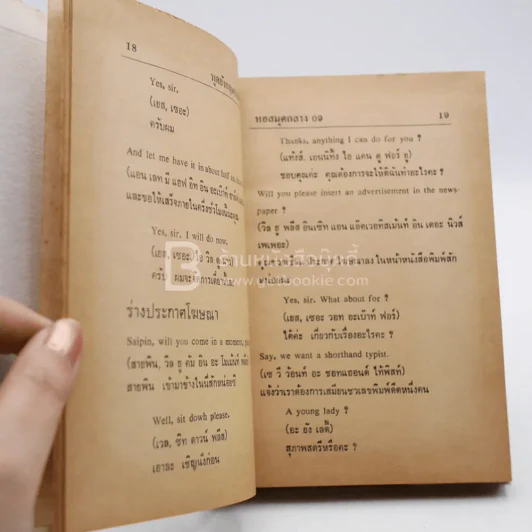 18
Yes, sir.
(เยส, เซอะ)
ครับผม
And let me have it in about half
(แอน เลท มี แฮฟ อิท อิน อะเบ๊าท์
และขอให้เสร็จภายในครึ่งชั่วโมงนี้นะคุณ
Yes, sir. I will do now.
(เยส, เซอะ ไอ วิล ดู
ครับ ผมจะ
ร่างประกาศโฆษณา
Saipin, will you come in a moment,
(สายพิน, วิล ยู คัม อิน อะ โมเม้นท์
สายพิน เข้ามาข้างในนี่สักหน่อยซิ
Well, sit dowh please.
(เวล, ซิท ดาวน์ พลีส)
เอาละ เชิญนั่งก่อน
หอสมุดกลาง 09
19
Thanks, anything I can do for you ?
(แท้งส์, เอนนีทิ้ง ไอ แคน ดู ฟอร์ ยู)
ขอบคุณค่ะ คุณต้องการจะให้ดิฉันทำอะไรคะ ?
Will you please insert an advertisement in the news-
paper ?
(วิล ยู พลีส อินเซิท แอน แอ๊ดเวอทิสเม้นท์ อิน เดอะ นิวส์
เพเพอะ)
ลง ในหน้าหนังสือพิมพ์สัก
Yes, sir. What about for ?
(เยส, เซอะ วอท อะเบ๊าท์ ฟอร์)
ได้ค่ะ เกี่ยวกับเรื่องอะไรคะ ?
Say, we want a shorthand typist.
(เซ วี ว้อนท์ อะ ชอทแฮนด์ ไท้พิสท์)
แจ้งว่าเราต้องการเสมียนชวเลขพิมพ์ดีดหนึ่งคน
A young lady ?
(อะ ยัง เลดี้)
สุภาพสตรีหรือคะ ?
ร้านหนังสือบุ๊คกี้